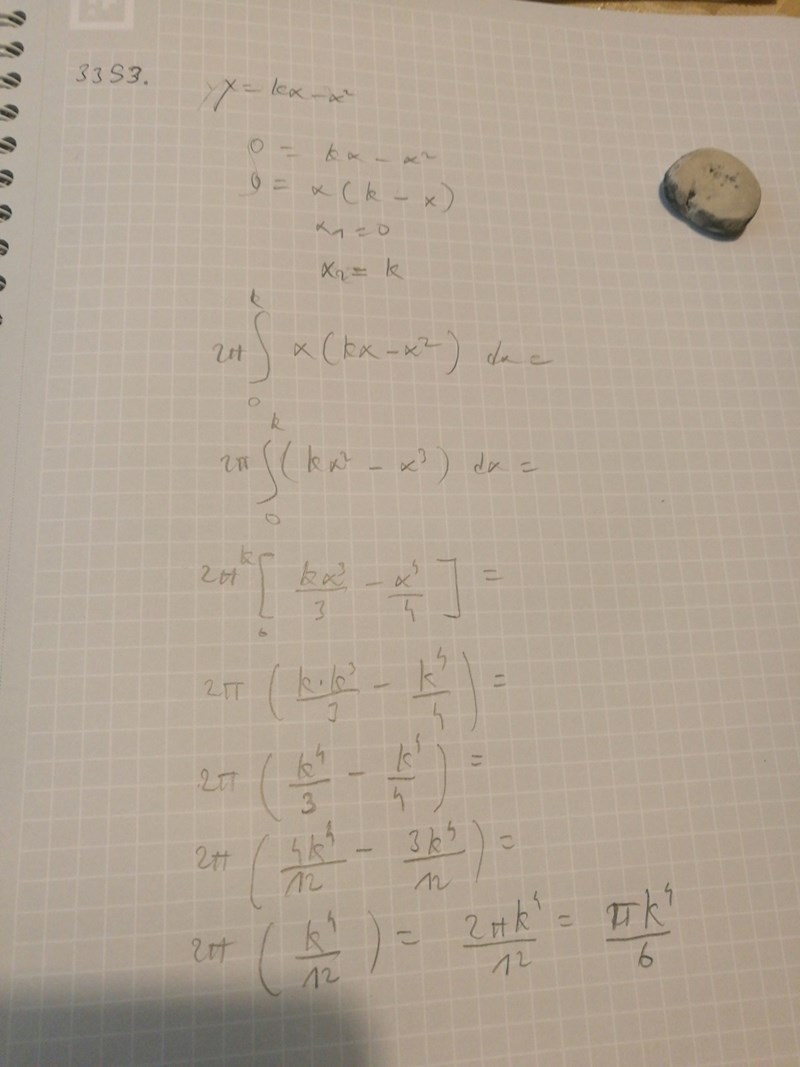 3353.
y = kx - x²
0 = kx - x²
0 = x(k - x)
x₁ = 0
x₂ = k
2π ∫₀ᵏ x(kx - x²) dx =
2π ∫₀ᵏ (kx² - x³) dx =
2π ᵏ₀[ kx³/3 - x⁴/4 ] =
2π ( k·k³/3 - k⁴/4 ) =
2π ( k⁴/3 - k⁴/4 ) =
2π ( 4k⁴/12 - 3k⁴/12 ) =
2π ( k⁴/12 ) = 2πk⁴/12 = πk⁴/6